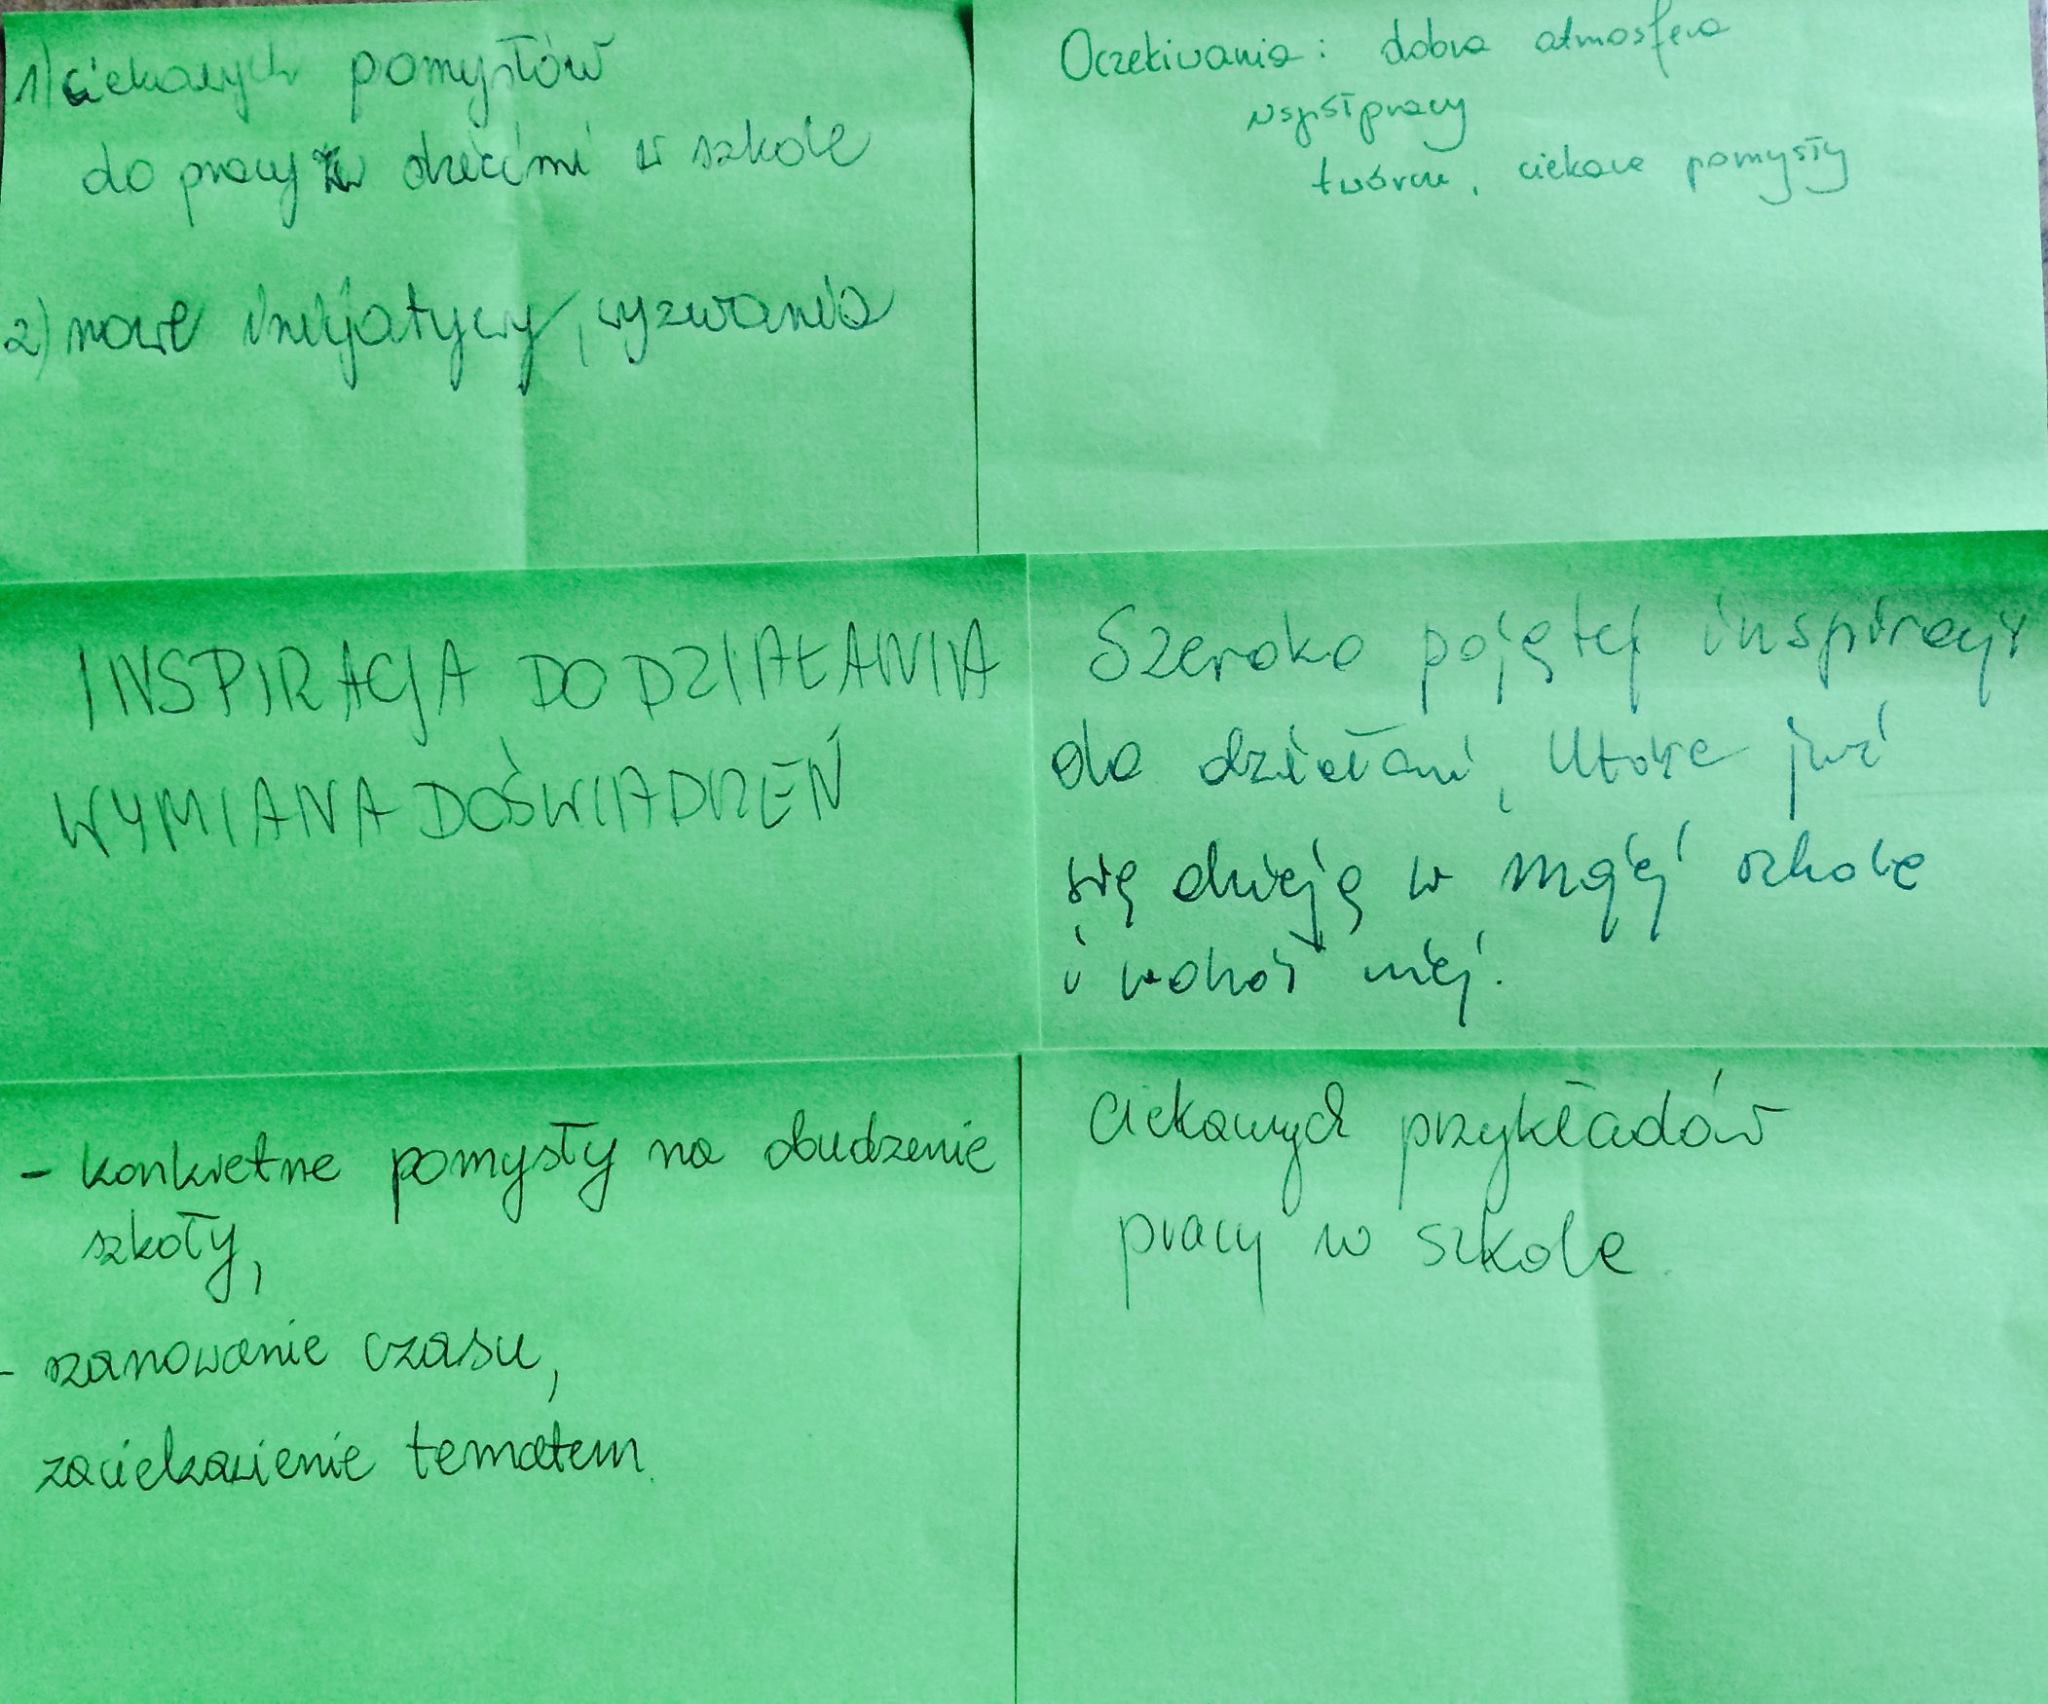 1) ciekawych pomysłów
do pracy z dziećmi w szkole
2) nowe inicjatywy, wyzwania
Oczekiwania: dobra atmosfera
współpracy
twórcze, ciekawe pomysły
INSPIRACJA DO DZIAŁANIA
WYMIANA DOŚWIADCZEŃ
Szeroko pojętej inspiracji
do działań, które już
się dzieją w mojej szkole
i wokół niej.
- konkretne pomysły na obudzenie
szkoły,
- szanowanie czasu,
zaciekawienie tematem.
Ciekawych przykładów
pracy w szkole